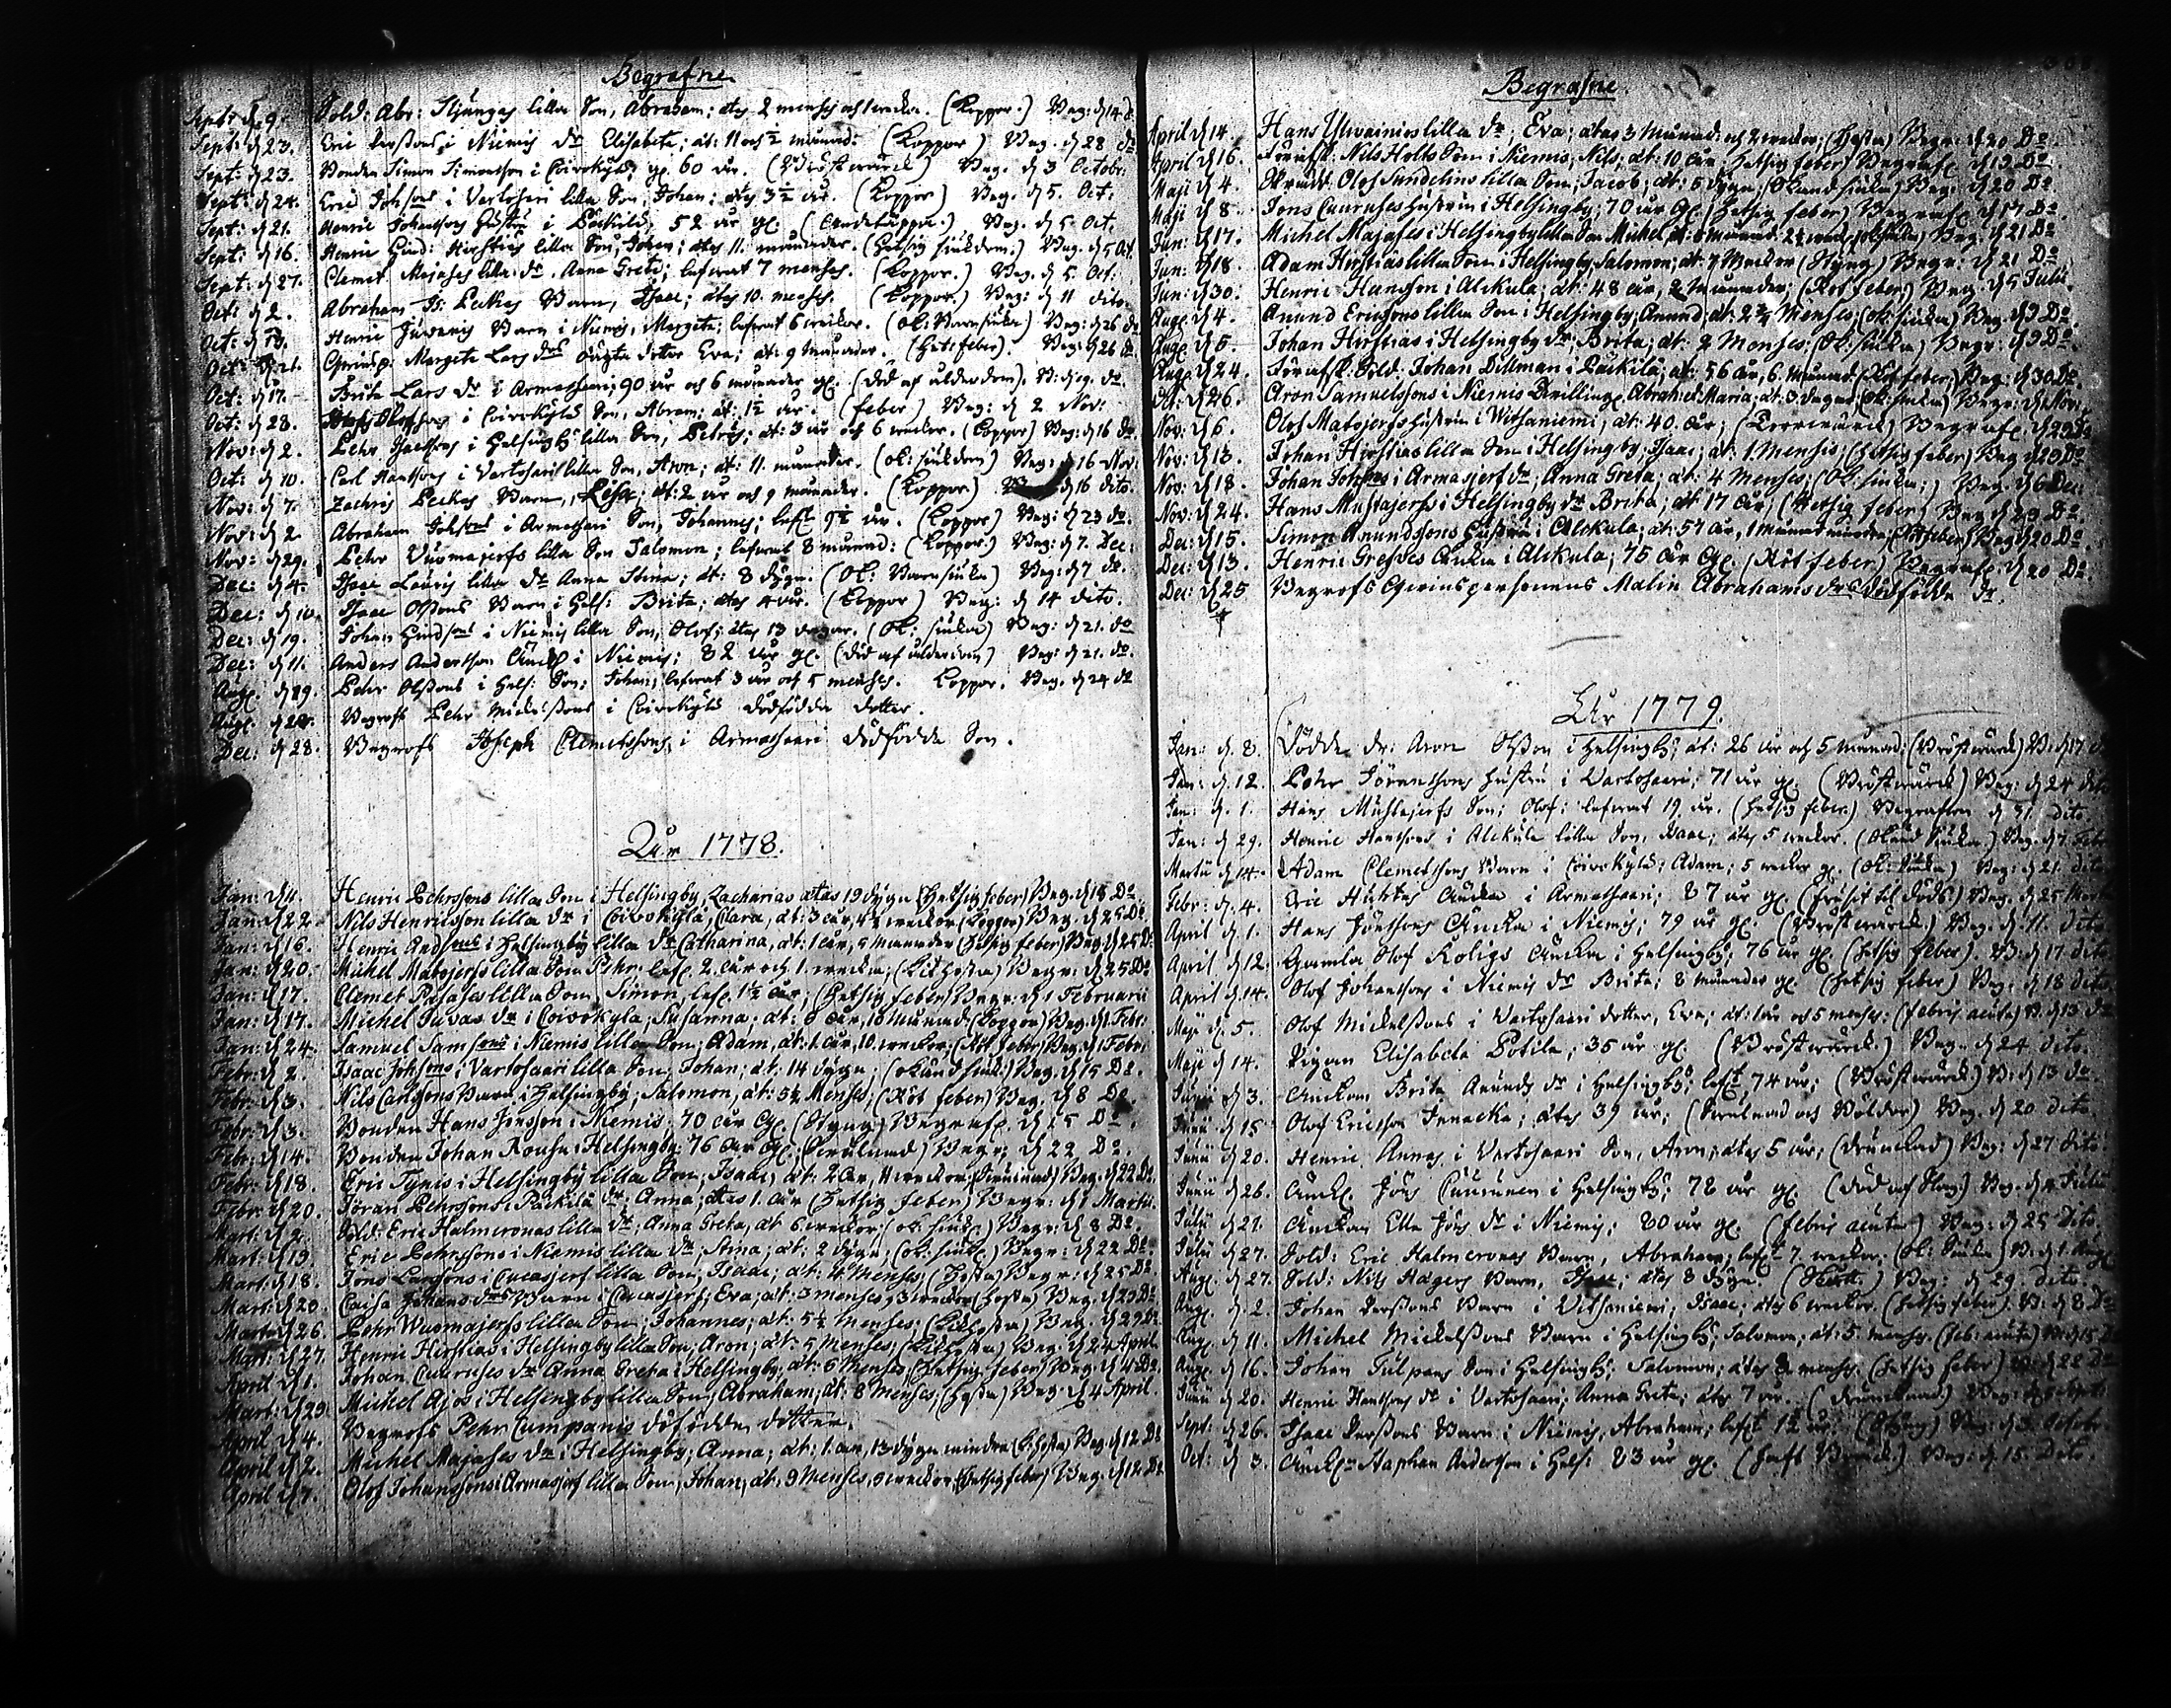 Begrafne
Sept: d. 9. Sold: Abr: Stjungas lilla Son, Abraham; ætas 2 menses och 1 wecka. (Koppor.) Begr: d. 14 d:o
Sept: d 23. Eric Perssons i Niemis dr Elisabeta; æt: 11 och ½ månad: (Koppor) Beg. d 28 do
Sept: d 23. Bonden Simon Simonsson i Coivokylä; gl. 60 år. (Bröstwärck) Beg. d 3 Octobr:
Sept: d 24. Eric Johsons i Vartosari lilla Son, Johan; ætas 3½ år. (Koppor) Beg. d 5. Oct.
Sept: d 21. Henric Johanssons Hustru i Päckilä, 52 år gl. (Andetäppa.) Beg. d 5. Oct.
Sept: d 16. Henric Hind: Hirstias lilla Son, Johan; ætas 11. månader. (Hetsig siukdom.) Beg. d 5 Oct.
Sept: d 27. Clemet Majases lilla dr, Anna Greta; lefwat 7 menses. (Koppor.) Beg. d 5. Oct:
Oct: d 2. Abraham Is. Peckas Barn, Isaac; ætas 10. menses. (Koppor.) Beg: d 11 dito.
Oct: d 13. Henric Juvanis Barn i Niemis, Margeta; lefwat 6 weckor. (Ok: Barnsiuka) Beg: d 26 do
Oct: d 21. Qwinsp: Margeta Lars drs oägta dotter Eva; æt: 9 månader. (Het: feber). Beg: d 26 do.
Oct: d 17. Brita Lars dr i Armassaari; 90 år och 6 månader gl. (död af ålderdom). B: d 19. do.
Oct: d 28. Olofssons i Coivokylä Son, Abram; æt: 1½ år. (feber) Beg: d 2 Nov:
Nov: d 2. Pehr Isacssons i Helsingby lilla Son, Petrus; æt: 3 år och 6 weckor. (Koppor) Beg: d 16 do.
Oct: d 10. Carl Hanssons i Vartosari lilla Son, Aron; æt: 11. månader. (ok: siukdom) Beg: d 16 Nov:
Nov: d 7. Zachris Peckas Barn, Lisa; æt: 2 år och 9 månader. (Koppor) d 16 dito.
Nov: d 2. Abraham Johsons i Armassari Son, Johannes; left 9½ år. (Koppor) Beg: d 23 do.
Nov: d 29. Pehr Vuomajerfs lilla Son Salomon; lefwat 8 månad: (Koppor.) Beg: d 7. Dec:
Dec: d 4. Isaac Lauris lilla dr Anna Stina; æt: 8 dygn. (Ok: Barnsiuka) Beg: d 7 do.
Dec: d 10. Isaac Olssons Barn i Hels: Brita; ætas 4 år. (Koppor) Beg: d 14 dito.
Dec: d 19. Johan Hindsons i Niemis lilla Son, Olof; ætas 13 dagar. (Ok: siuka) Beg: d 21. do
Dec: d 11. Anders Andersson Änckl i Niemis; 82 år gl. (död af ålderdom) Beg: d 21. do.
Aug. d 29. Pehr Olssons i Hels: Son; Johan; lefwat 3 år och 5 menses. Koppor. Beg. d 24 do
Aug. Begrofs Pehr Mickelssons i Coivokylä dödfödda dotter.
Dec: d 28. Begrofs Joseph Clemetssons i Armassaari dödfödda Son.
Åhr 1778.
Jan: d 4. Henric Pehrssons lilla Son i Helsingby, Zacharias ætas 19 dygn (Hetsig feber) Beg. d 18 Do
Jan: d 22. Nils Henricsson lilla dr i Coivokyla, Clara, æt: 3 år, 4½ weckor (Koppor) Beg. d 25 Do.
Jan: d 16. Henric Andsons i Helsingby lilla Dr Catharina, æt: 1 år, 5 månader (Hetsig feber) Beg. d 25 Do
Jan: d 20. Michel Matojerfs lilla Son Pehr; lef. 2. år och 1. wecka; (Kikhosta) Begr: d 25 Do
Jan: d 17. Clemet Pasases lilla Son, Simon, lef. 1½ år; (Hetsig feber) Begr. d 1 Februarii
Jan: d 17. Michel Juvas dr i Coivokyla, Susanna; æt: 8 år, 10 månad. (Koppor) Beg. d 1 Febr:
Jan: d 24. Samuel Samsons i Niemis lilla Son, Adam, æt: 1. år, 10. weckor; (Röt feber) Beg. d 1 Febr:
Febr: d 2. Isaac Johsons i Vartosaari lilla Son, Johan; æt: 14 dygn; (okänd siuk:) Beg. d 15 Do.
Febr: d 3. Nils Carlsons Barn i Helsingby, Salomon, æt: 5½ Menses; (Röt feber) Beg. d 8 Do
Febr: d 3. Bonden Hans Jönsson i Niemis; 70 år Gl. (Styng) Begraf. d 15 Do.
Febr: d 14. Bonden Johan Rousu i Helsingby; 76 år Gl. Begr. d 22 Do.
Febr: d 18. Eric Tynis i Helsingby lilla Son, Isaac, æt: 2 år, 11 weckor; Beg. d 22 Do
Febr: d 20. Jöran Pehrssons i Päckilä dr; Anna; ætas 1. år (Hetsig feber) Begr: d 1 Martii.
Mart: d 2. Sold: Eric Halmeronas lilla dr; Anna Greta, æt 6 weckor; (ok: siuk:) Begr: d 8 Do.
Mart: d 19. Eric Pehrssons i Niemis lilla dr; Stina; æt: 2 dygn; (ok: siuk.) Begr: d 22 Do.
Mart: d 18. Jöns Larssons i Cucasjerf lilla Son, Isaac; æt: 4 Menses; (Hosta) Begr: d 25 Do
Mart: d 20. Caisa Johans drs Barn i Cucasjerf; Eva; æt: 3 menses, 3 weckor (Hosta) Beg. d 29 Do
Mart: d 26. Pehr Wuomajerfs lilla Son; Johannes; æt: 5½ Menses; (Kikhosta) Beg. d 29 Do
Mart: d 27. Henric Hirstias i Helsingby lilla Son, Aron; æt: 5 Menses; (Kikhosta) Beg. d 4 April.
April d 1. Johan Cuuruses dr Anna Greta i Helsingby, æt: 6 Menses, (Hetsig feber) Beg. d 4 Do.
Mart: d 29. Michel Ajos i Helsingby lilla Son; Abraham; æt: 8 Menses; (Hosta) Beg. d 4 April.
April d 4. Begrofs Pehr Cumpanis döfödda dotter.
April d 2. Michel Majases Dr i Helsingby; Anna; æt: 1. år, 13 dygn mindre (k: hosta) Beg. d 12 Do
April d 7. Olof Johanssons i Armasjerf lilla Son, Johan, æt: 9 Menses, 2 weckor, (Hetsig feber) Beg. d 12. Do
Begrafne
April d 14. Hans Ylwainios lilla dr, Eva; ætas 3 Månad: och 2 weckor; (Hosta) Begr. d 20 Do
April d 16. Nils Holts Son i Niemis, Nils, æt: 10 år, (Hetsig feber) Begraf. d 19 Do.
Maji d 4. Olof Sundelins lilla Son; Jacob; æt: 5 dygn; (okänd siuka) Beg: d 20 Do
Maji d 8. Jöns Cuuruses Hustru i Helsingby; 70 år Gl. (Hetsig feber) Begraf. d 17 Do
Jun: d 17. Michel Majases i Helsingby lilla Son Michel, Beg. d 21 Do
Jun: d 18. Adam Hirstias lilla Son i Helsingby, Salomon; æt: 7 Weckor (Styng) Begr: d 21 Do.
Jun: d 30. Henric Hansson i Alckula; æt: 48 år, 2 Månader; (Röt feber) Beg. d 5 Julii.
Aug. d 4. Anund Ericssons lilla Son i Helsingby, Anund, æt: 2¾ Menses; (ok: siuka) Beg. d 9 Do.
Aug. d 5. Johan Hirstias i Helsingby dr, Brita; æt: 2 Menses; (Ok: siuka) Begr. d 9 Do.
Aug. d 24. Sold. Johan Dillman i Päckilä; æt: 56 år, 6. Månad. (Röt feber;) Beg: d 30 Do.
Oct: d 26. Aron Samuelssons i Niemis Twilling. Abrah. et Maria; æt: 3 dagar; (Ok: siuka) Begr: d 1 Nov:
Nov: d 6. Olof Matojerfs Hustru i Witsaniemi; æt: 40. år; Begraf. d 29 Do
Nov: d 13. Johan Hirstias lilla Son i Helsingby, Isaac; æt: 1. Mensis; (Hetsig feber) Beg. d 29 Do
Nov: d 18. Johan Johsons i Armasjerf dr; Anna Greta; æt: 4 Menses; (Ok: siuka;) Beg. d 6 Dec:
Nov: d 24. Hans Mustajerfs i Helsingby dr Brita, æt 17 år; (Hetsig feber) Beg. d 29 Do.
Dec: d 15. Simon Anundssons Hustru i Alckula; æt: 57 år, 1 Månad mindre, (Röt feber) Beg. d 20 Do.
Dec: d 13. Henric Gresbes Äncka i Alckula; 75 år Gl. (Röt feber) Begraf. d 20 Do
Dec: d 25 Begrofs Qwinspersonens Malin Abrahams drs dödfödda dr.
Åhr 1779.
Jan: d. 8. Dödde dr: Aron Olsson i Helsingby; æt: 26 år och 5 månad: (Bröstwärck) B: d 17.
Jan: d. 12. Pehr Jöranssons hustru i Vartosaari; 71 år gl. (Bröstwärck) Beg: d 24 dito
Jan: d. 1. Hans Mustajerfs Son; Olof; lefwat 19 år. (Hetsig feber.) Begrafwen d 31. dito.
Jan: d. 29. Henric Hanssons i Alckula lilla Son, Isaac; ætas 5 weckor. (Okänd siuka.) Beg. d 7. Febr:
Martii d 14. Adam Clemetssons Barn i Coivokylä; Adam; 5 weckor gl. (Ok: siuka) Beg: d 21. dito
Febr: d. 4. Eric Äncka i Armassaari; 87 år gl. (frusit til döds.) Beg. d 25 Martii
April d. 1. Hans Jönssons Äncka i Niemis; 79 år gl. (Bröstwärck.) Beg. d 11. dito
April d. 12. Gamla Olof Roligs Äncka i Helsingby; 76 år gl. (Hetsig feber). B: d 17 dito
April d. 14. Olof Johanssons i Niemis dr Brita; 8 månader gl. (Hetsig feber) Beg. d 18 dito.
Maji d. 5. Olof Mickelssons i Vartosaari dotter, Eva; æt: 1 år och 5 menses: (febris acuta) B: d 13 do
Maji d 14. Pigan Elisabeta Potila; 35 år gl. (Bröstwärck.) Beg. d 24 dito.
Junii d 3. Änckan Brita Anunds dr i Helsingby; left 74 år; (Bröstwärck) B: d 13 do
Junii d 15. Olof Ericsson Innacka; ætas 39 år; Beg. d 20 dito
Junii d 20. Henric Annas i Vartosaari Son, Aron; ætas 5 år; (drunknad) Beg: d 27 dito
Junii d 26. Änckl. Jöns Cuurunen i Helsingby; 78 år gl. (död af Slag) Beg. d 4 Julii
Julii d 21. Änckan Ella Jöns dr i Niemis; 80 år gl. (febris acuta) Beg: d 25 dito
Julii d 27. Sold: Eric Halmeronas Barn, Abraham; left 7. weckor. (Ok: siuka) B: d 1. Aug.
Aug. d 27. Sold: Nils Hägers Barn, Isac; ætas 8 dygn. Beg: d 29 dito.
Aug. d. 2. Johan Perssons Barn i Vitsaniemi, Isaac; ætas 6 weckor. (Hetsig feber). B: d 8 Do
Aug. d 11. Michel Mickelssons Barn i Helsingby; Salomon; æt: 5. menses. (feb: acuta) B: d 15
Aug. d 16. Johan Tulpans Son i Helsingby, Salomon; ætas 8 menses. (Hetsig feber) B: d 22 Do
Junii d 20. Henric Hanssons dr i Vartosaari; Anna Greta; ætas 7 år. (drunknad)
Sept: d 26. Isaac Perssons Barn i Niemis, Abraham; left 1½ år. (Styng) Beg: d 3. Octobr.
Oct: d 3. Änckl. Staphan Andersson i Hels: 83 år gl. Beg: d. 15. Dito